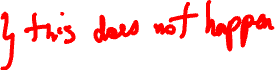 if this does not happen